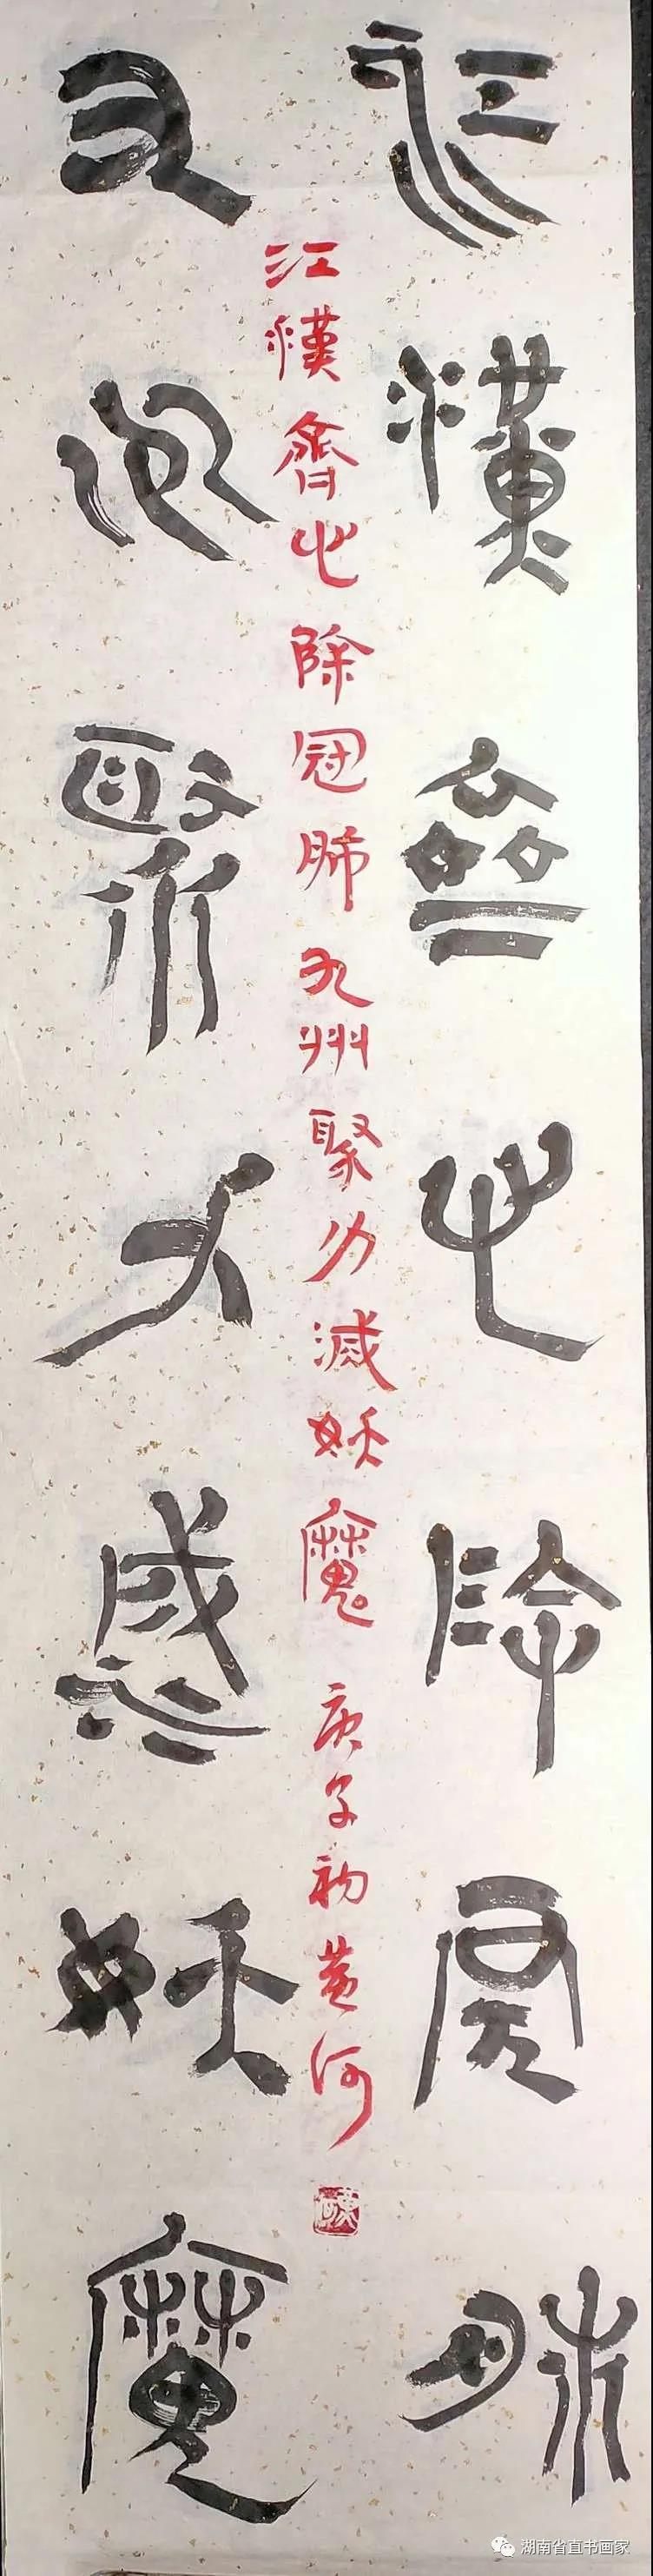 江漢齊心除冠肺
九州聚力滅妖魔
江漢齊心除冠肺九州聚力滅妖魔 庚子初黄何
湖南省直书画家